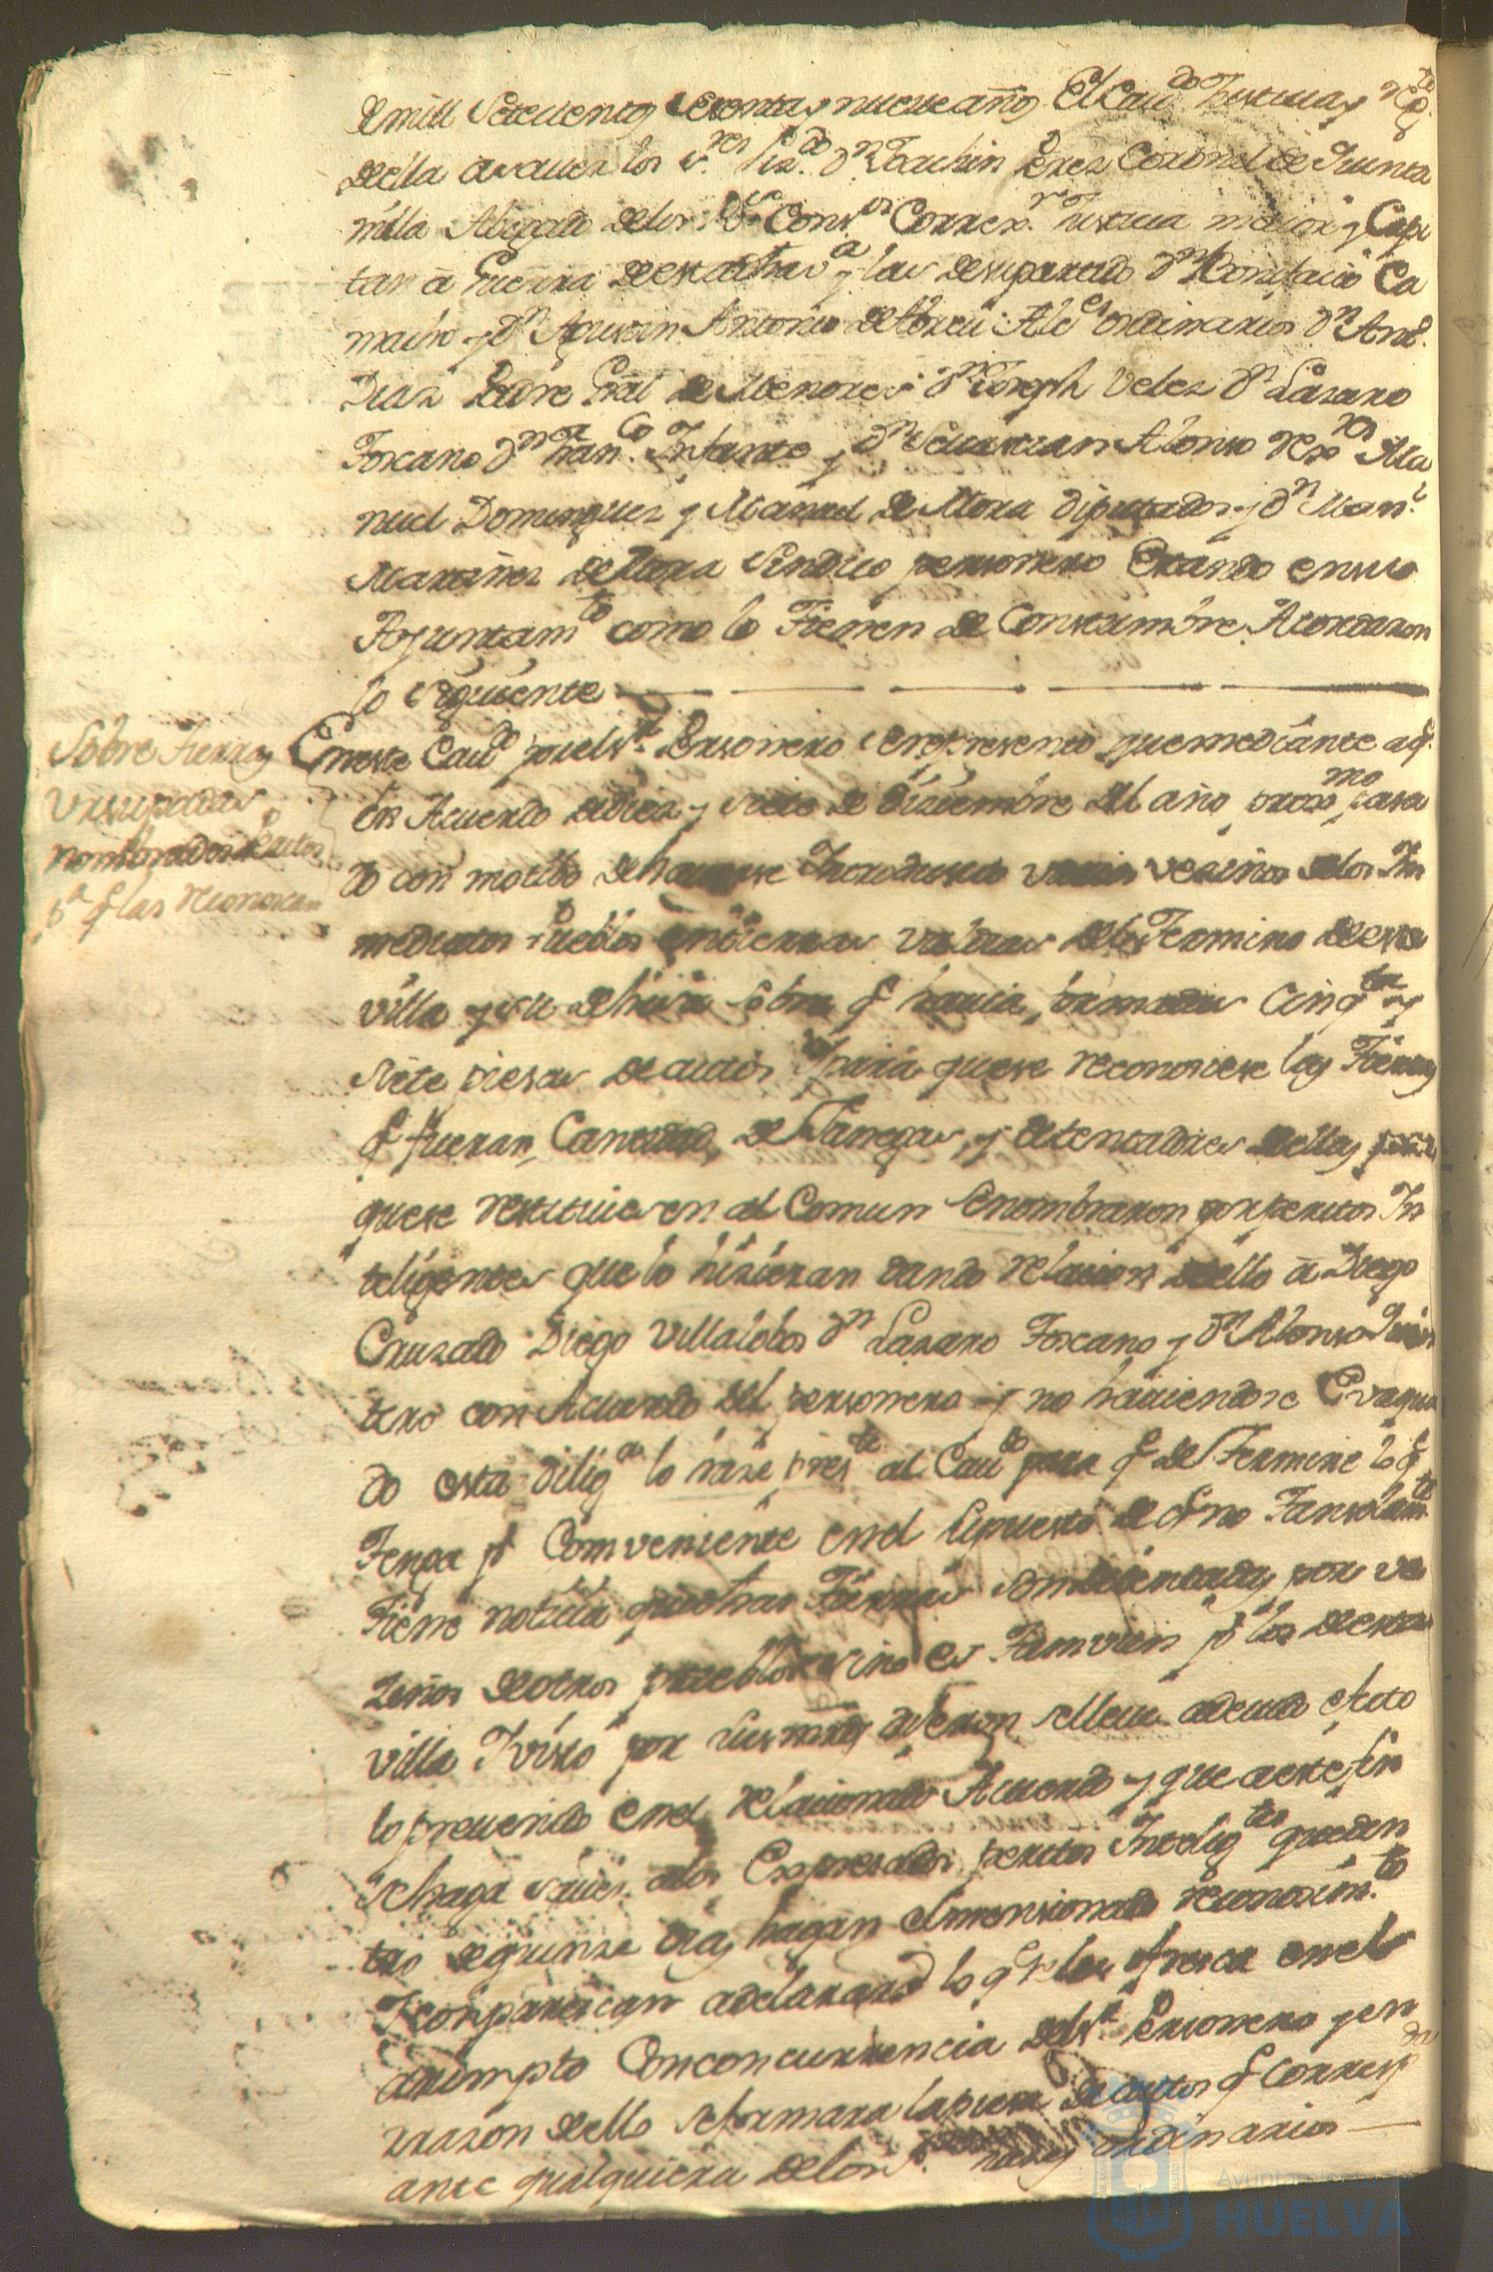 de mill Setecientos sesenta y nueve años. El Cau.do Justicia y Reg.to
de ella a saver los s.res Liz.do D.n Joachin Perez Coronel de Quinta
nilla Abogado de los R.s Cons.os Correx.or Justicia maior y Capi
tan a Guerra de esta dha v.a y las de su partido D.n Bonifacio Ca
macho y D.n Agustin Antonio de Abreu Alc.es ordinarios D.n And.s
Diaz Padre Gral de Menores D.n Joseph Velez D.n Lazaro
Toscano D.n Fran.co Infante y D.n Sevastian Alonso Rex.res Ma
nuel Dominguez y Manuel de Mora Diputados y D.n Man.l
Martinez de Mora Sindico personero Estando en su
Ayuntam.to como lo Tienen de Constumbre Acordaron
lo siguiente
Sobre tierras
Vsurpadas
nombrados Peritos
p.a q las reconoscan
En este Cau.do por el s.r Personero se represento que mediante a q.
en Acuerdo de dies y siete de Diziembre del año prox.mo pasa
do con motibo de haverse Introducido varios vezinos de los In
mediatos Pueblos en tierras valdias del Termino de esta
villa y su dehesa sobre q havia formadas Cinq.ta y
siete piesas de autos Para que se reconosiese las Tierras
q fueran, Cantidad, de Fanegas, y detentadores de ellas para
que se restituiesen al Comun Se nombraron por peritos In
teligentes que lo hizieran dando relacion de ello a Diego
Cruzado Diego Villalobos D.n Lazaro Toscano y D.n Alonso Quin
tero con Acuerdo del personero y no haviendose Evaqua
do esta dilig.a lo haze pres.te al Cau.do para q deTermine lo q
Tenga p.r Comveniente en el supuesto de q no Tansolam.te
Tiene noticia que otras Tierras son detentadas por ve
zinos de otros pueblos sino es Tamvien p.r los de esta
villa Y visto por sus mrds dixeron se lleve a devido efecto
lo prevenido en el relacionado Acuerdo y que a este fin
se haga saver a los Expresados peritos Intelig.tes que den
tro de quinze dias hagan el mensionado reconosim.to
Y comparescan a declarar lo q se les ofresca en el
asumpto Con concurrencia del s.r Personero y en
razon de ello se formara la piesa de autos q corresp.da
ante qualquiera de los s.res ordinarios
Ayuntamiento
HUELVA